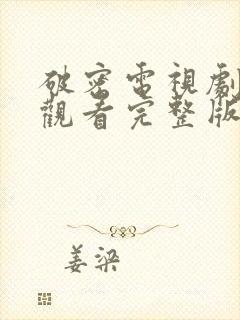 破密電視劇
觀看完整版
姜梁